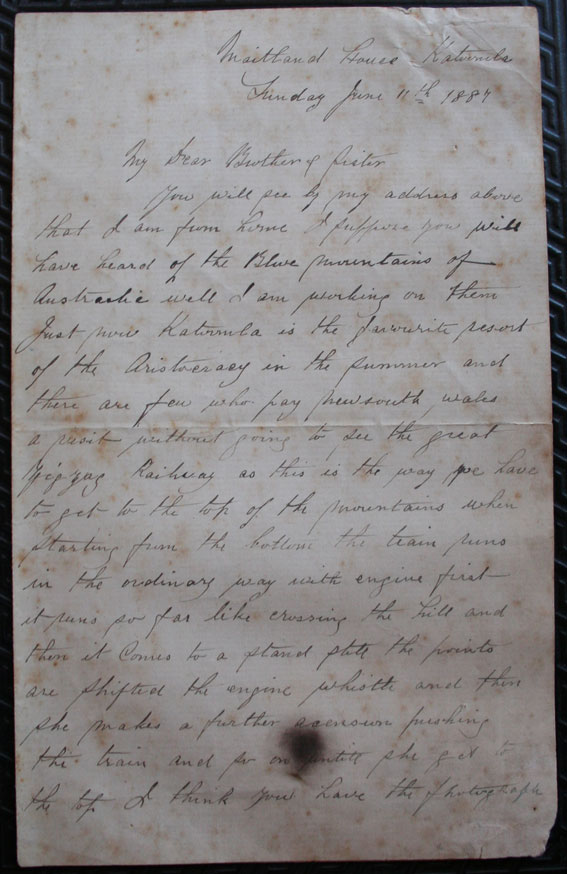 Maitland House Katoomba
Sunday June 11th 1887
My Dear Brother & Sister
You will see by my address above
that I am from home I suppose you will
have heard of the Blue mountains of
Australie well I am working on them
Just now Katoomba is the favourite resort
of the Aristocracy in the summer and
there are few who pay newsouth wales
a visit without going to see the great
Zigzag Railway as this is the way we have
to get to the top of the mountains when
starting from the bottom the train runs
in the ordinary way with engine first
it runs so far like crossing the hill and
then it comes to a stand still the points
are shifted the engine whistle and then
she makes a further acension pushing
the train and so on untill she get to
the top I think you have the photograph